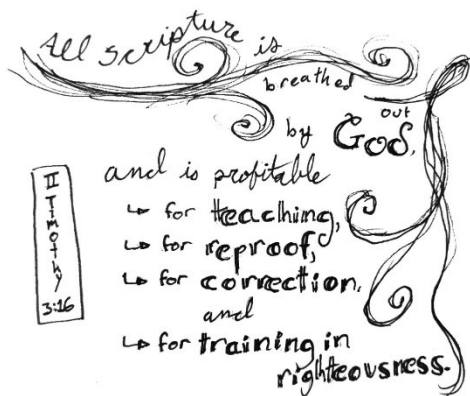 All Scripture is
breathed
out
by God,
and is profitable
↳ for teaching,
↳ for reproof,
↳ for correction,
and
↳ for training in
righteousness.
II
Timothy
3:16